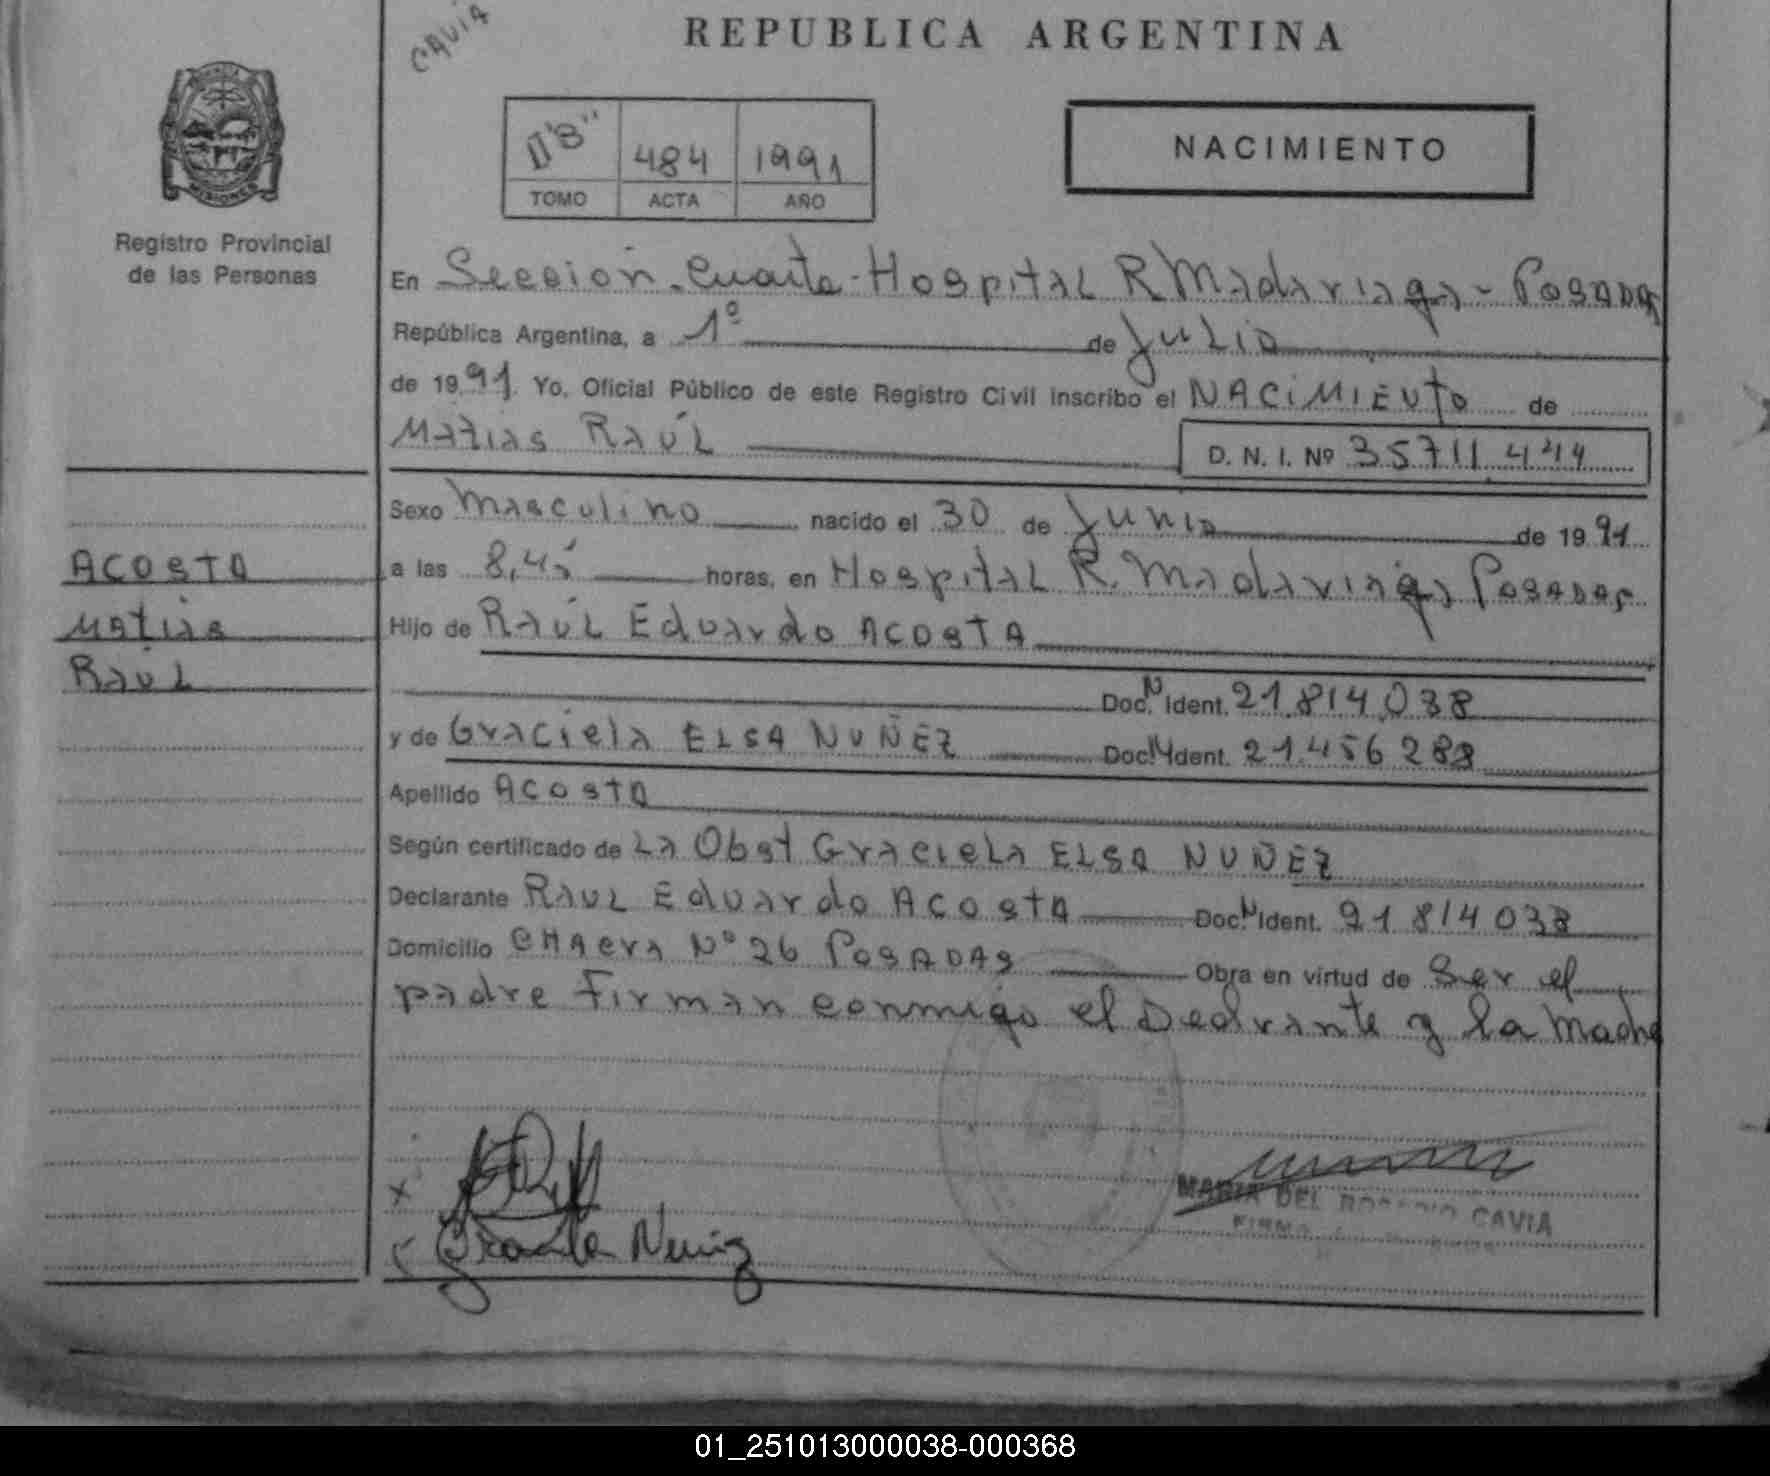 CAVIA
REPUBLICA ARGENTINA
II "B" 484 1991
TOMO ACTA AÑO
NACIMIENTO
MISIONES
Registro Provincial
de las Personas
En Sección Cuarta - Hospital R Madariaga - POSADAS
República Argentina, a 1º de Julio
de 1991. Yo, Oficial Público de este Registro Civil inscribo el NACIMIENTO de
Matias Raúl
D. N. I. Nº 35711444
Sexo Masculino nacido el 30 de Junio de 1991
a las 8,45 horas, en Hospital R. Madariaga Posadas
Hijo de Raúl Eduardo ACOSTA
Doc. N Ident. 21.814.038
y de Graciela ELSA NUÑEZ Doc. N Ident. 21.456.288
Apellido ACOSTA
Según certificado de La Obst Graciela ELSA NUÑEZ
Declarante Raul Eduardo Acosta Doc. N Ident. 21 814 038
Domicilio CHACRA Nº 26 POSADAS Obra en virtud de Ser el
padre Firman conmigo el Declrante y la Madre
ACOSTA
Matias
Raúl
x
Graciela Nuñez
MARIA DEL ROSARIO CAVIA
FIRMA
01_251013000038-000368